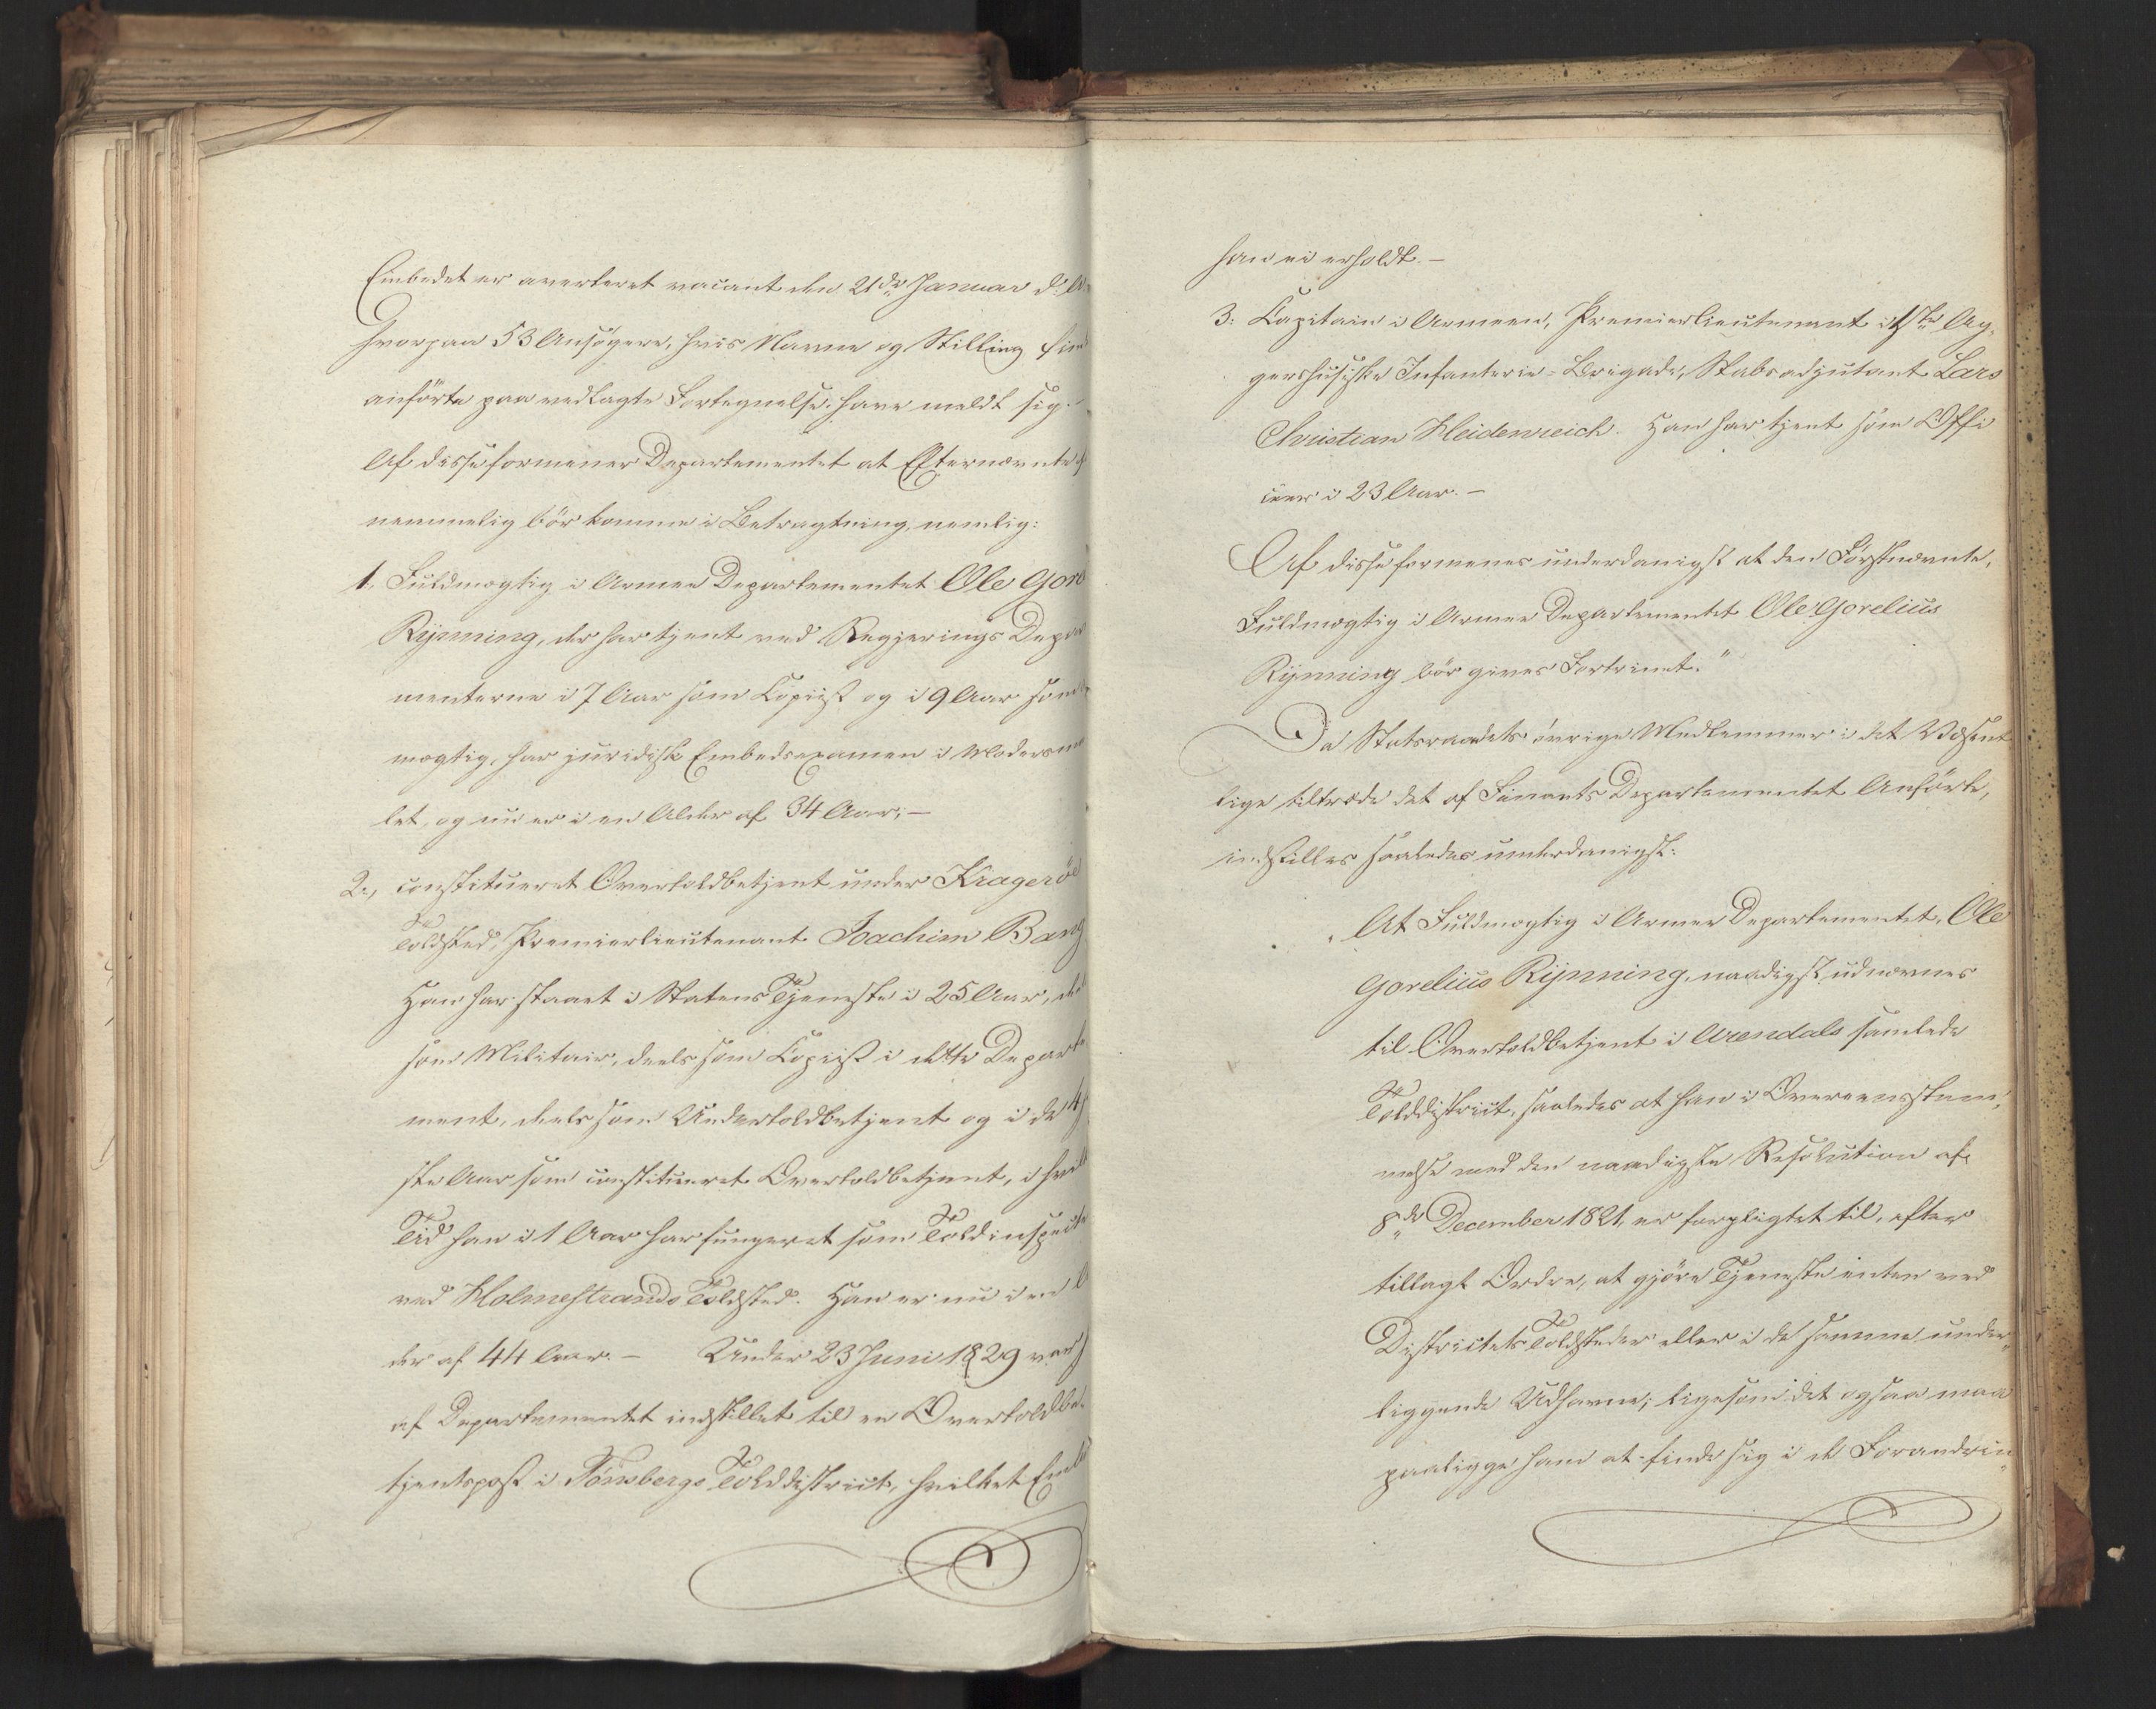 Embedet er averteret vacant den 21de Januar d. A.
hvorpaa 53 Ansøgere, hvis Navne og Stilling fin
anførte paa vedlagte Fortegnelse, have meldt sig.
Af disse formener Departementet at Efternævnte
nemmelig bør komme i Betragtning, nemlig:
1. Fuldmægtig i Armee Departementet Ole Gore
Rynning, der har tjent ved Regjerings Depar
menterne i 7 Aar som Copiist og i 9 Aar som
mægtig, har juridisk Embedsexamen i Modersmaa
let, og nu er i en Alder af 34 Aar; —
2., constitueret Overtoldbetjent under Krageröe
Toldsted, Premierlieutenant Joachim Bang
Han har staaet i Statens Tjeneste i 25 Aar, deels
som Militair, deels som Copiist i dette Departe
ment, deels som Undertoldbetjent og i de 4
ste Aar som constitueret Overtoldbetjent, i hvilk
Tid han i 1 Aar har fungeret som Toldinspect
ved Holmestrands Toldsted. Han er nu i en Al
der af 44 Aar. — Under 23 Juni 1829 var
af Departementet indstillet til en Overtoldbe-
tjentspost i Tönsbergs Tolddistrict, hvilket Emb
han ei erholdt. —
3. Capitain i Armeen, Premierlieutenant i 1ste Ag,
gershusiske Infanterie-Brigade, Stabsadjutant Lars
Christian Heidenreich. Han har tjent som Offi
ceer i 23 Aar. —
Af disse formenes underdanigst at den Førstnævnte,
Fuldmægtig i Armee Departementet Ole Gorelius
Rynning bør gives Fortrinet."
Da Statsraadets övrige Medlemmer i det Væsent
lige tiltræde det af Finants Departementet Anførte,
indstilles saaledes underdanigst:
At Fuldmægtig i Armee Departementet, Ole
Gorelius Rynning, naadigst udnævnes
til Overtoldbetjent i Arendals samlede
Tolddistrict, saaledes at han i Overeensstem,
melse med den naadigste Resolution af
8de December 1821, er forpligtet til, efter
tillagt Ordre, at gjøre Tjeneste enten ved
Districtets Toldsteder eller i de samme under
liggende Udhavne; ligesom det ogsaa maa
paaligge ham at finde sig i de Forandrin